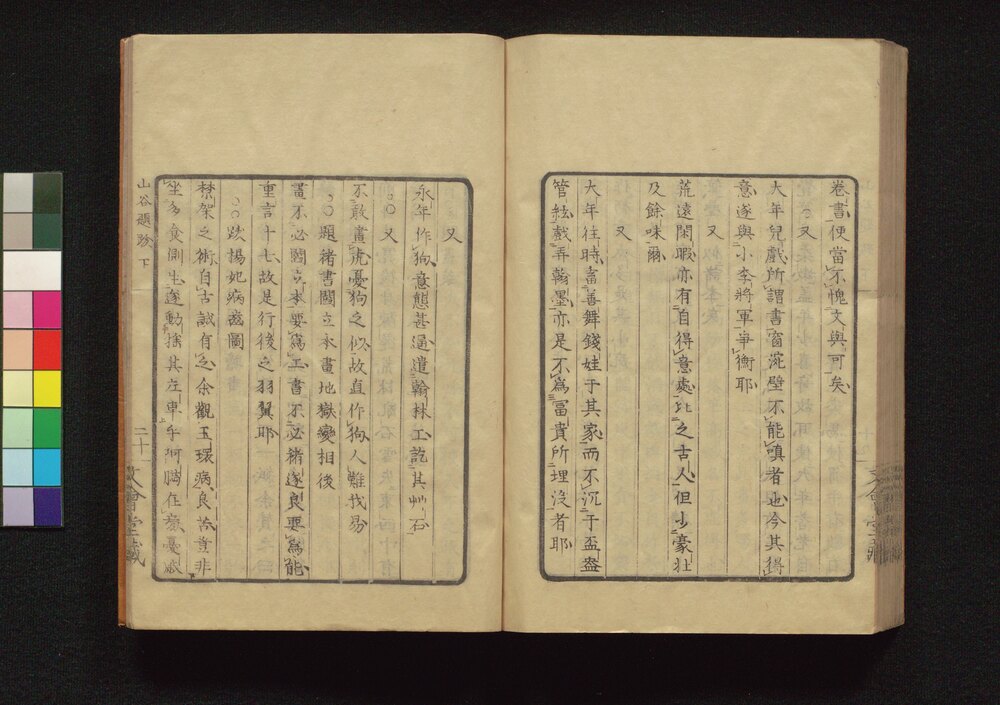 卷書便當不愧文與可矣
又
大年兒戲所謂書窗涴壁不能嗔者也今其得
意遂與小李將軍爭衡耶
又
荒遠閑暇亦有自得意處比之古人但少豪壯
及餘味爾
又
大年往時喜善舞錢娃于其家而不沉于盃盎
管絃戲弄翰墨亦是不爲冨貴所埋沒者耶
又
永年作狗意態甚逼遣翰林工訖其艸石
○○又
不敢畫虎憂狗之似故直作狗人難我易
○○題褚書閻立本畫地獄變相後
畫不必閻立本要爲工書不必褚遂良要爲能
重言十七故是行後之羽翼耶
○○跋揚妃病齒圖
禁架之術自古誠有之余觀玉環病良苦豈非
坐多食側生遂動搖其左車乎
山谷題跋 下
二十一
文會堂藏